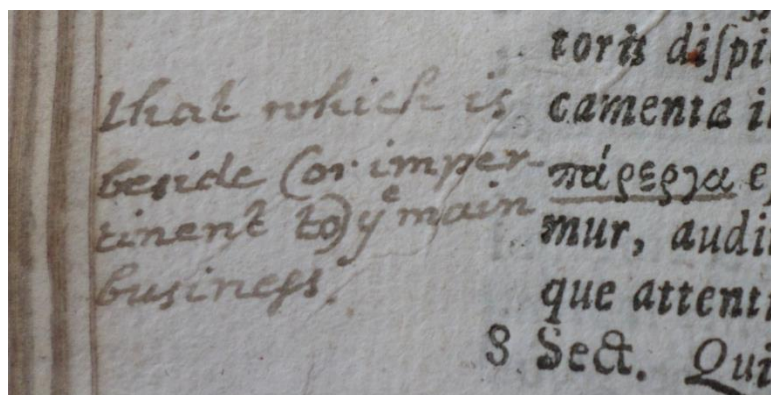 that which is
beside (or imper-
tinent to) yᵉ main
busineſs.
toris diſpi
camenta i
πάρεργα e
mur, audi
que attenti
8 Sect. Qui